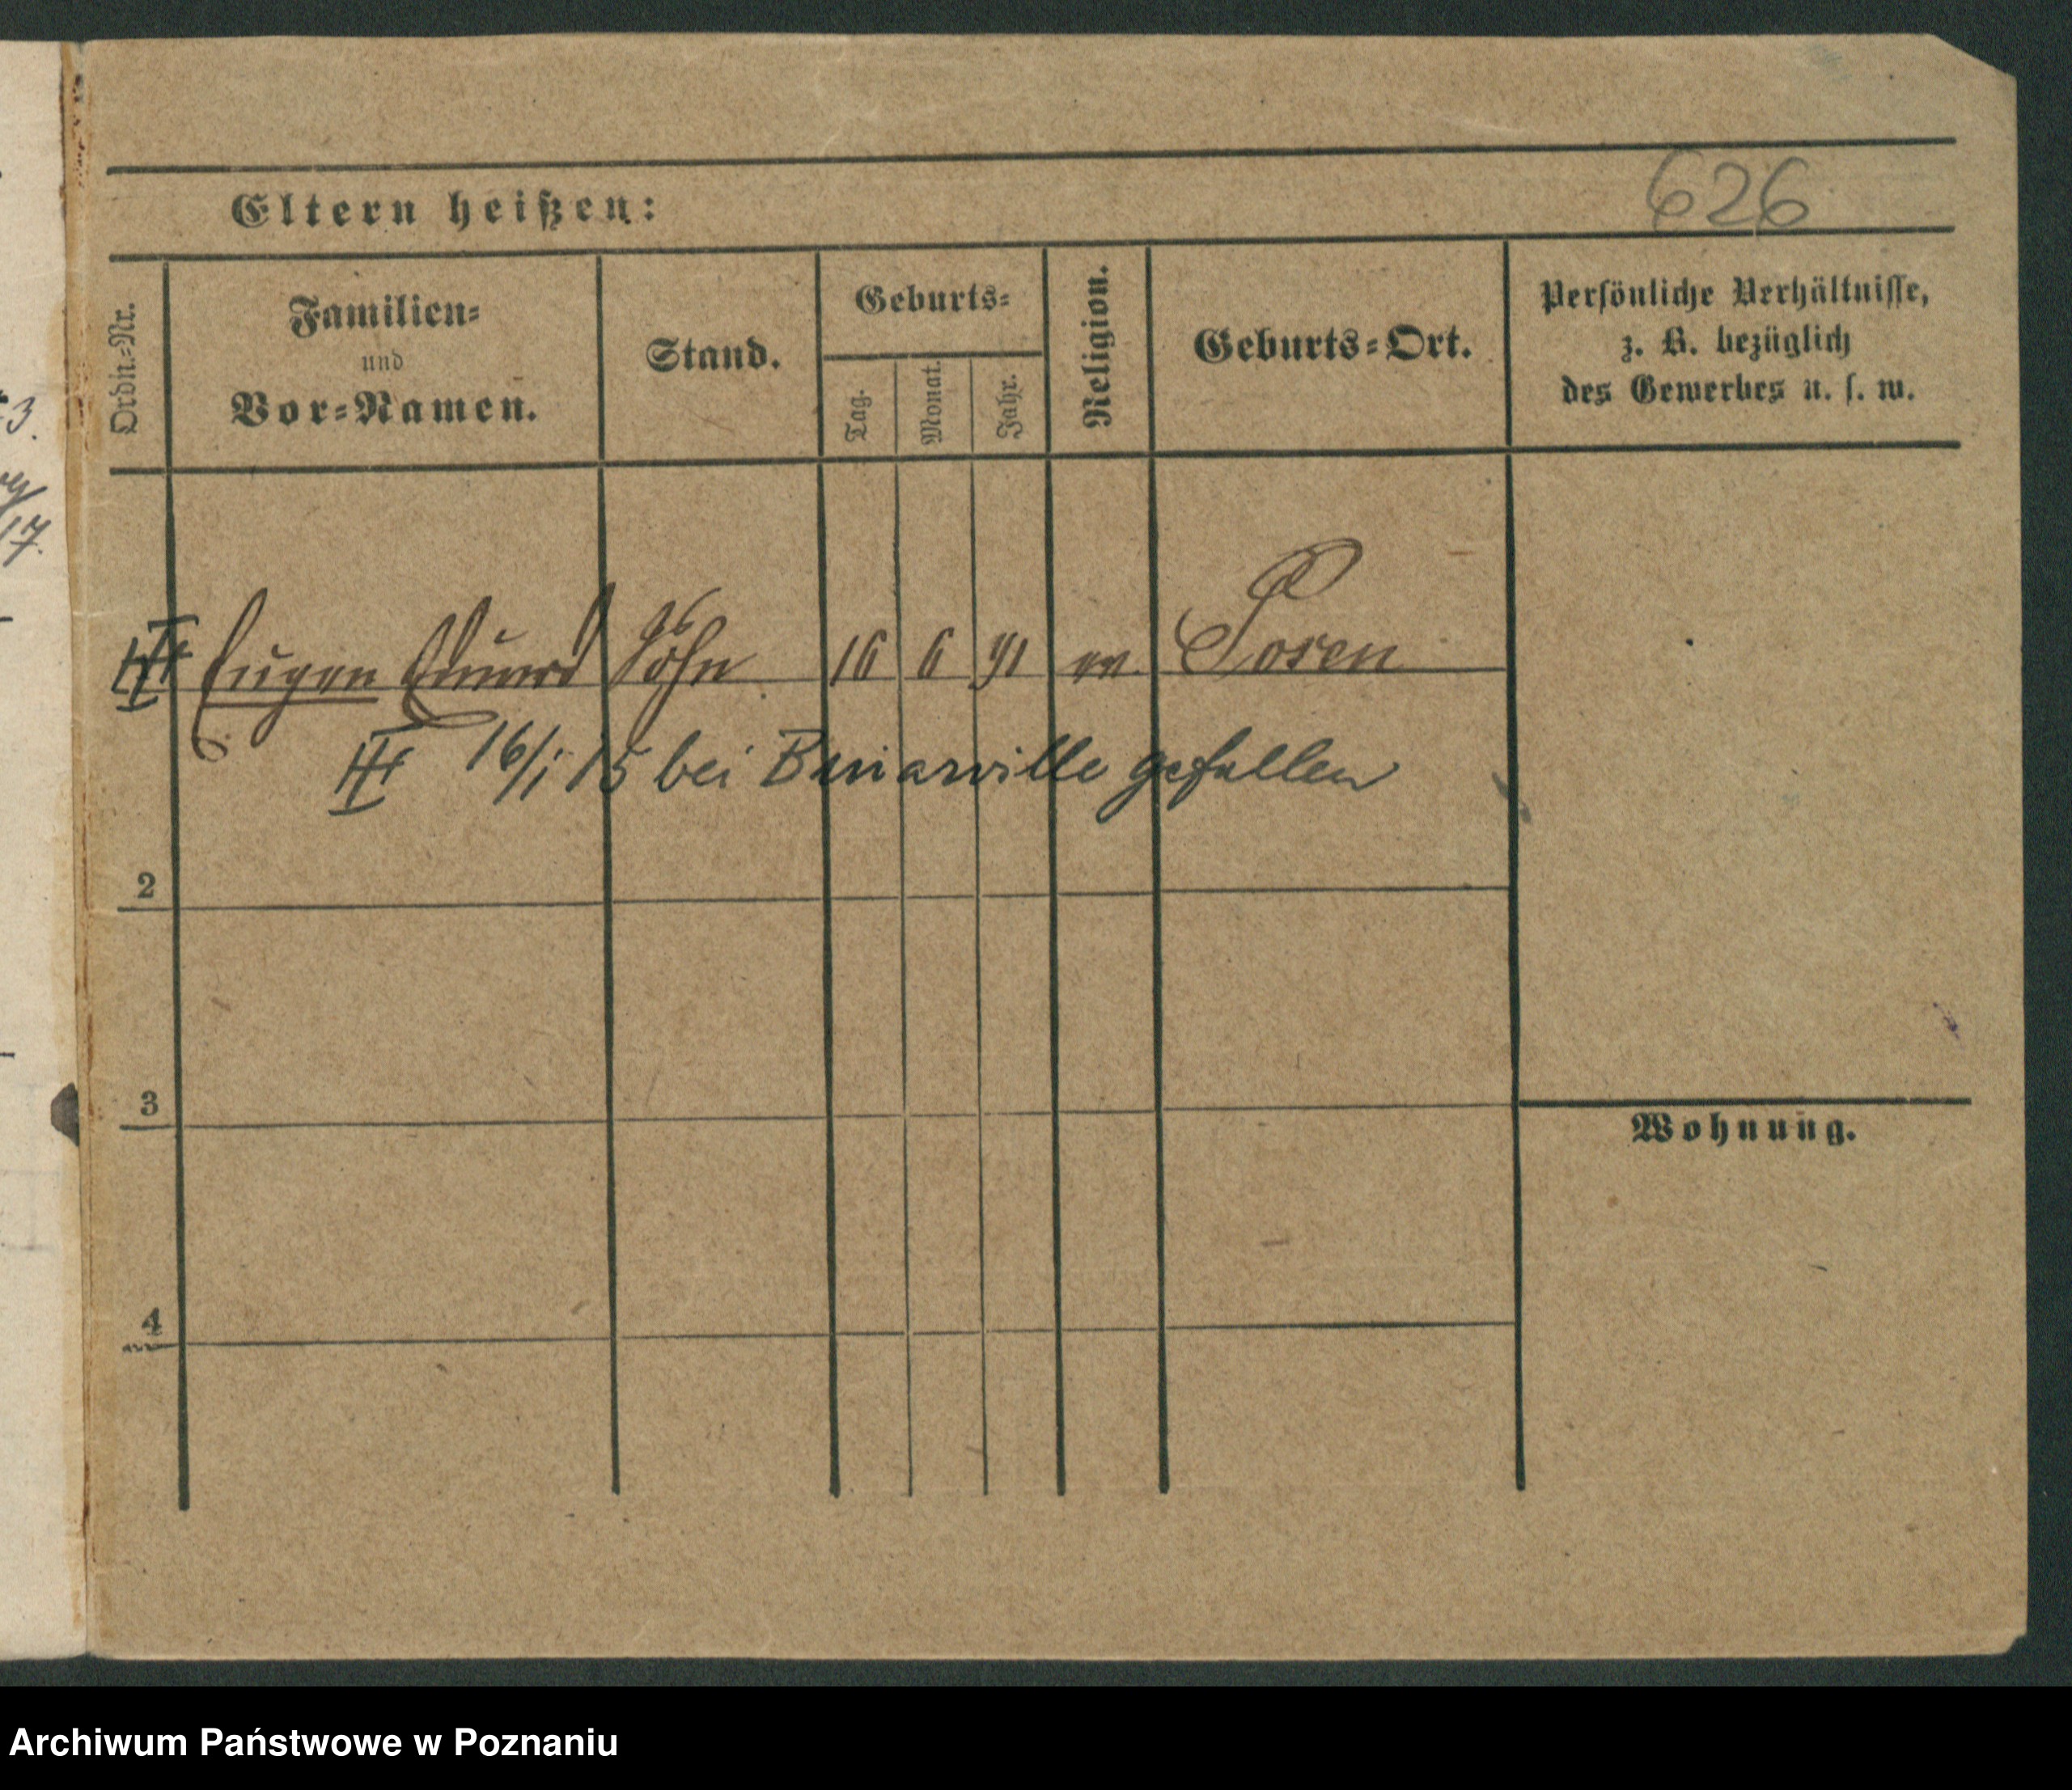 626
Eltern heißen:
Ordn.=Nr.
Familien=
und
Vor=Namen.
Stand.
Geburts=
Tag.
Monat.
Jahr.
Religion.
Geburts=Ort.
Persönliche Verhältnisse,
z. B. bezüglich
des Gewerbes u. s. w.
3.
17.
Eugen Eduard Sohn 16 6 91 ev. Posen
16/1 15 bei Binarville gefallen
2
3
Wohnung.
4
Archiwum Państwowe w Poznaniu